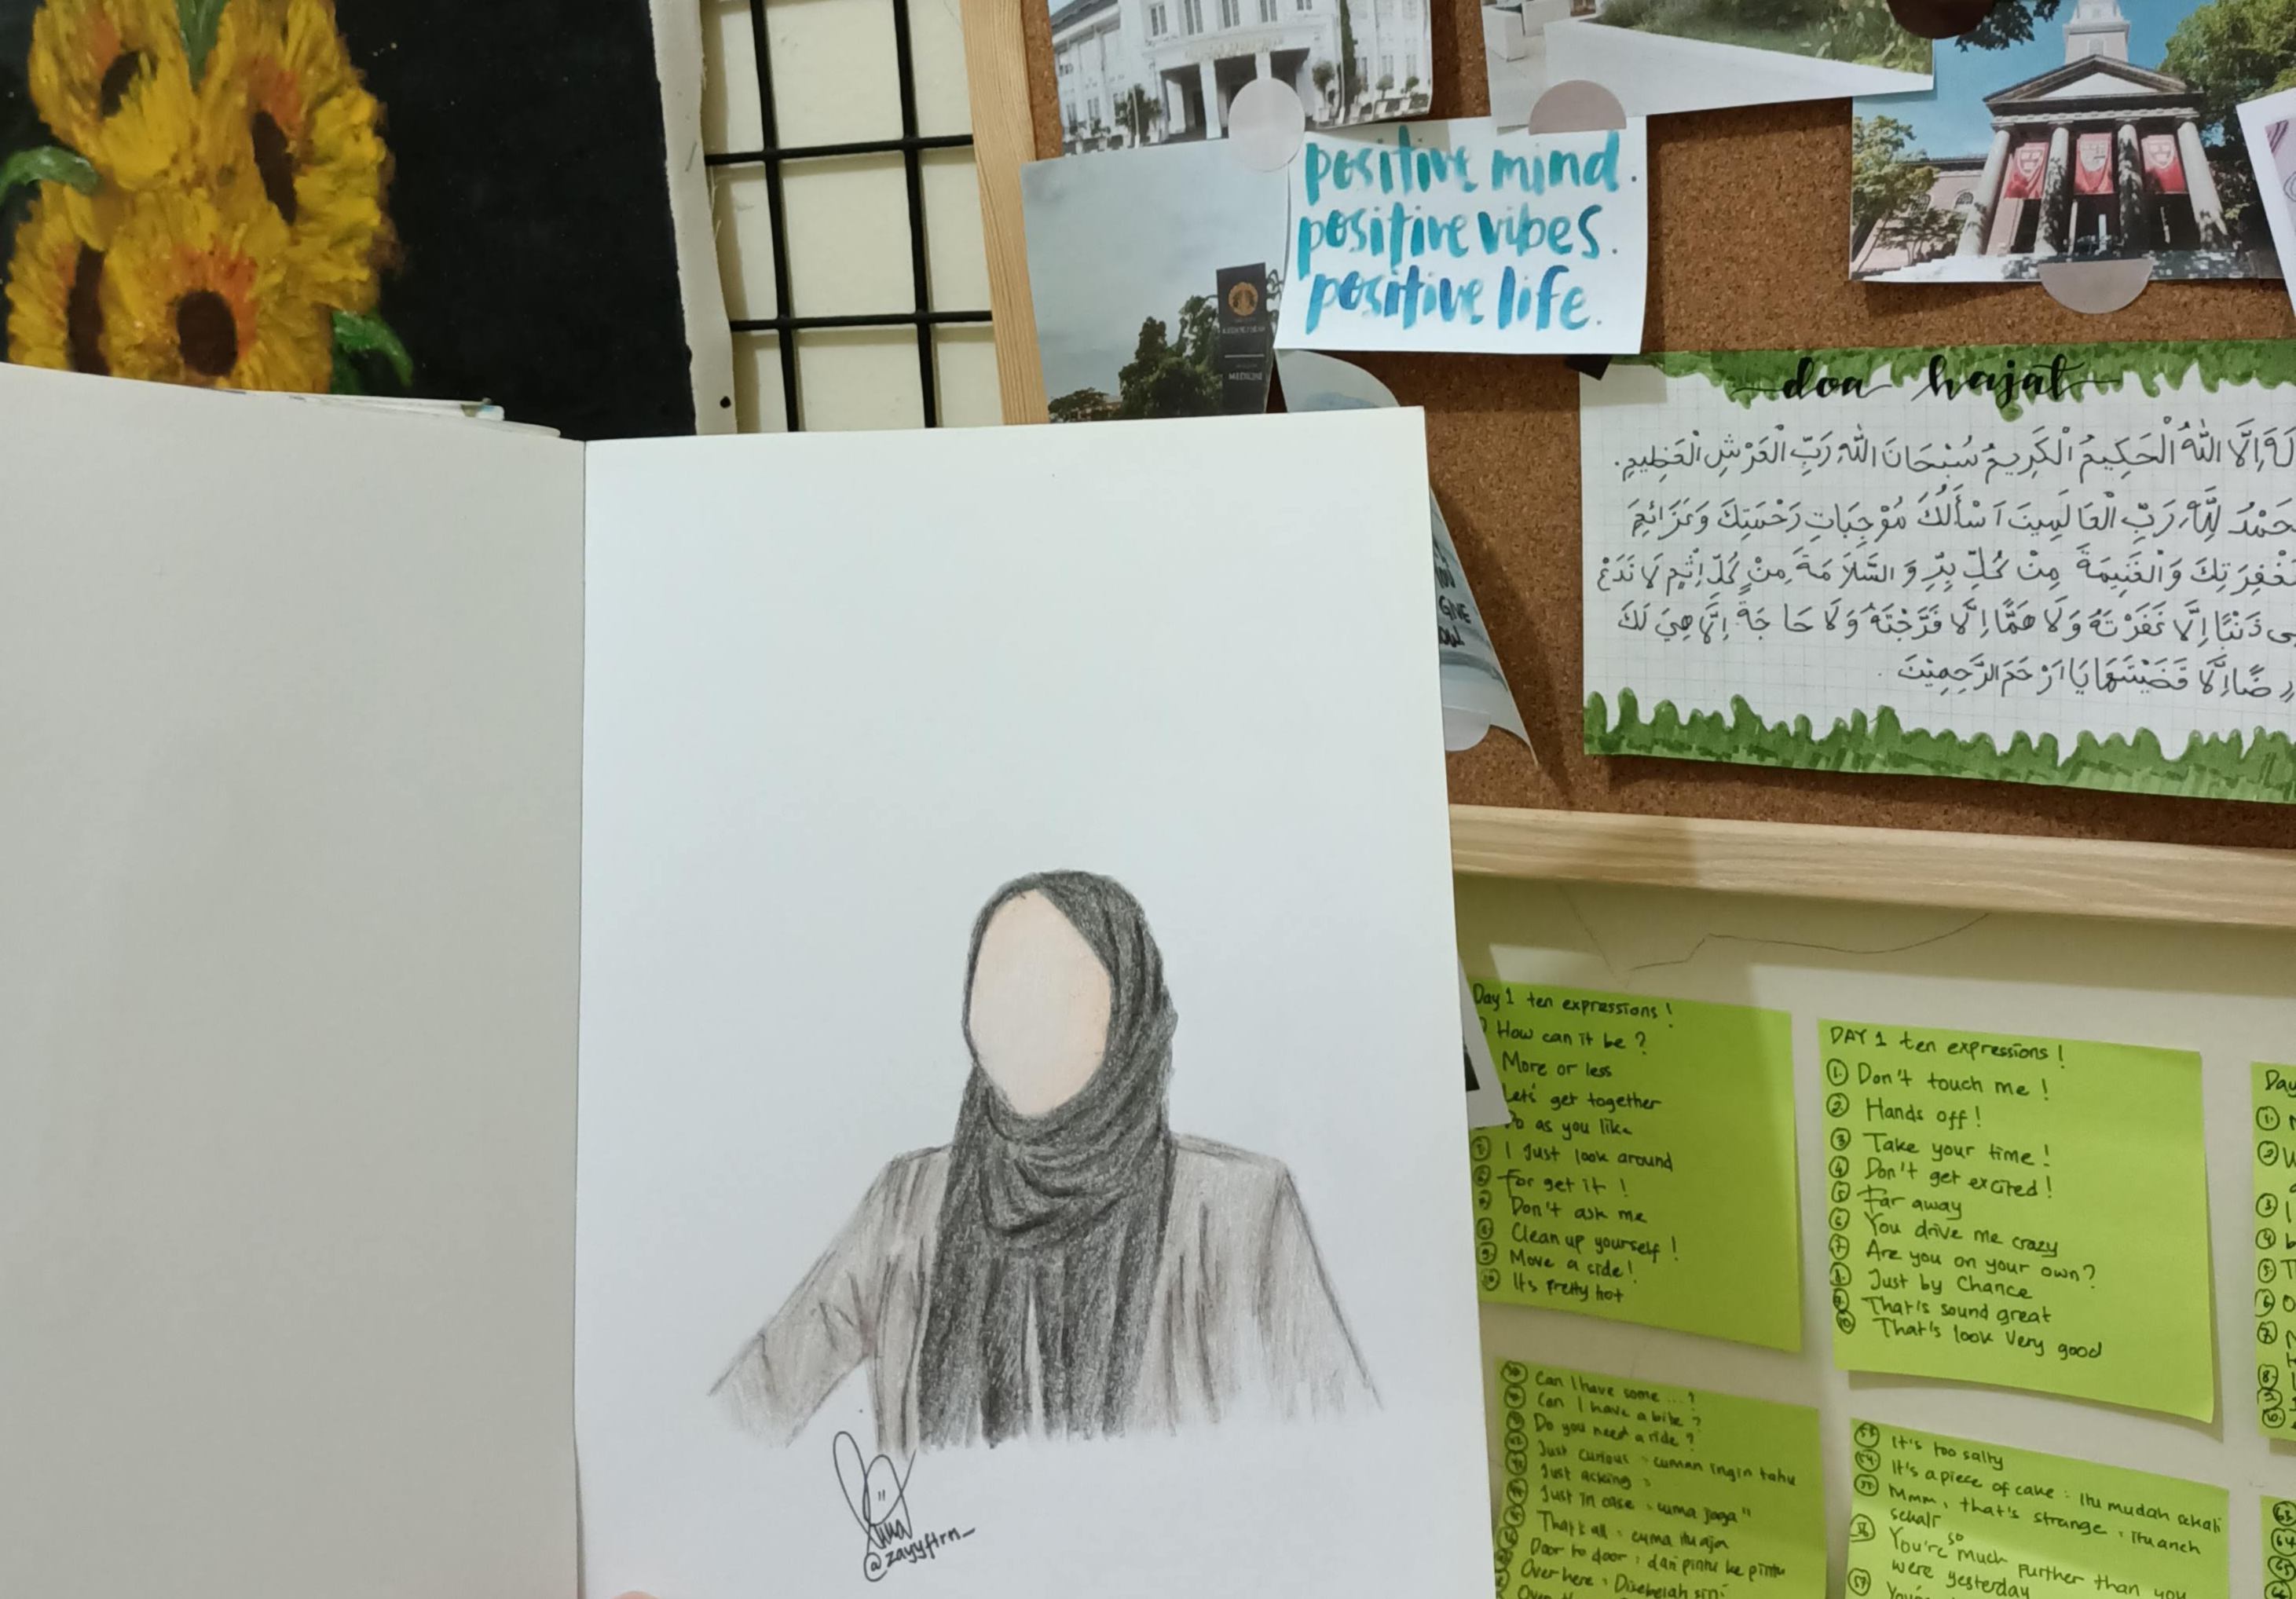 positive mind.
positive vibes.
positive life.
MEDICINE
doa hajat
اِلَّا اللّٰهُ الْحَكِيمُ الْكَرِيمُ سُبْحَانَ اللّٰهِ رَبِّ الْعَرْشِ الْعَظِيمِ.
لِلّٰهِ رَبِّ الْعَالَمِينَ اَسْأَلُكَ مُوْجِبَاتِ رَحْمَتِكَ وَعَزَائِمَ
وَالْغَنِيمَةَ مِنْ كُلِّ بِرٍّ وَالسَّلَامَةَ مِنْ كُلِّ اِثْمٍ لَا تَدَعْ
ذَنْبًا اِلَّا غَفَرْتَهُ وَلَا هَمًّا اِلَّا فَرَّجْتَهُ وَلَا حَاجَةً اِلَّا هِيَ لَكَ
رِضًا اِلَّا قَضَيْتَهَا يَا اَرْحَمَ الرَّحِمِيْنَ.
YOU
GIVE
Day 1 ten expressions!
How can it be?
More or less
Let's get together
Do as you like
I Just look around
For get it!
Don't ask me
Clean up yourself!
Move a side!
10 It's Pretty hot
DAY 1 ten expressions!
1. Don't touch me!
2. Hands off!
3 Take your time!
4 Don't get excited!
5 Far away
6 You drive me crazy
7 Are you on your own?
8 Just by Chance
9 That's sound great
10 That's look very good
Can I have some...?
Can I have a bite?
Do you need a ride?
Just curious : cuman ingin tahu
Just asking
Just in case : cuma jaga"
That's all : cuma itu aja
Door to door : dari pintu ke pintu
Over here : Disebelah sini
It's too salty
It's a piece of cake : itu mudah sekali
Mmm, that's strange : itu aneh
sekali
You're so much further than you
were yesterday
@zayyftrn_